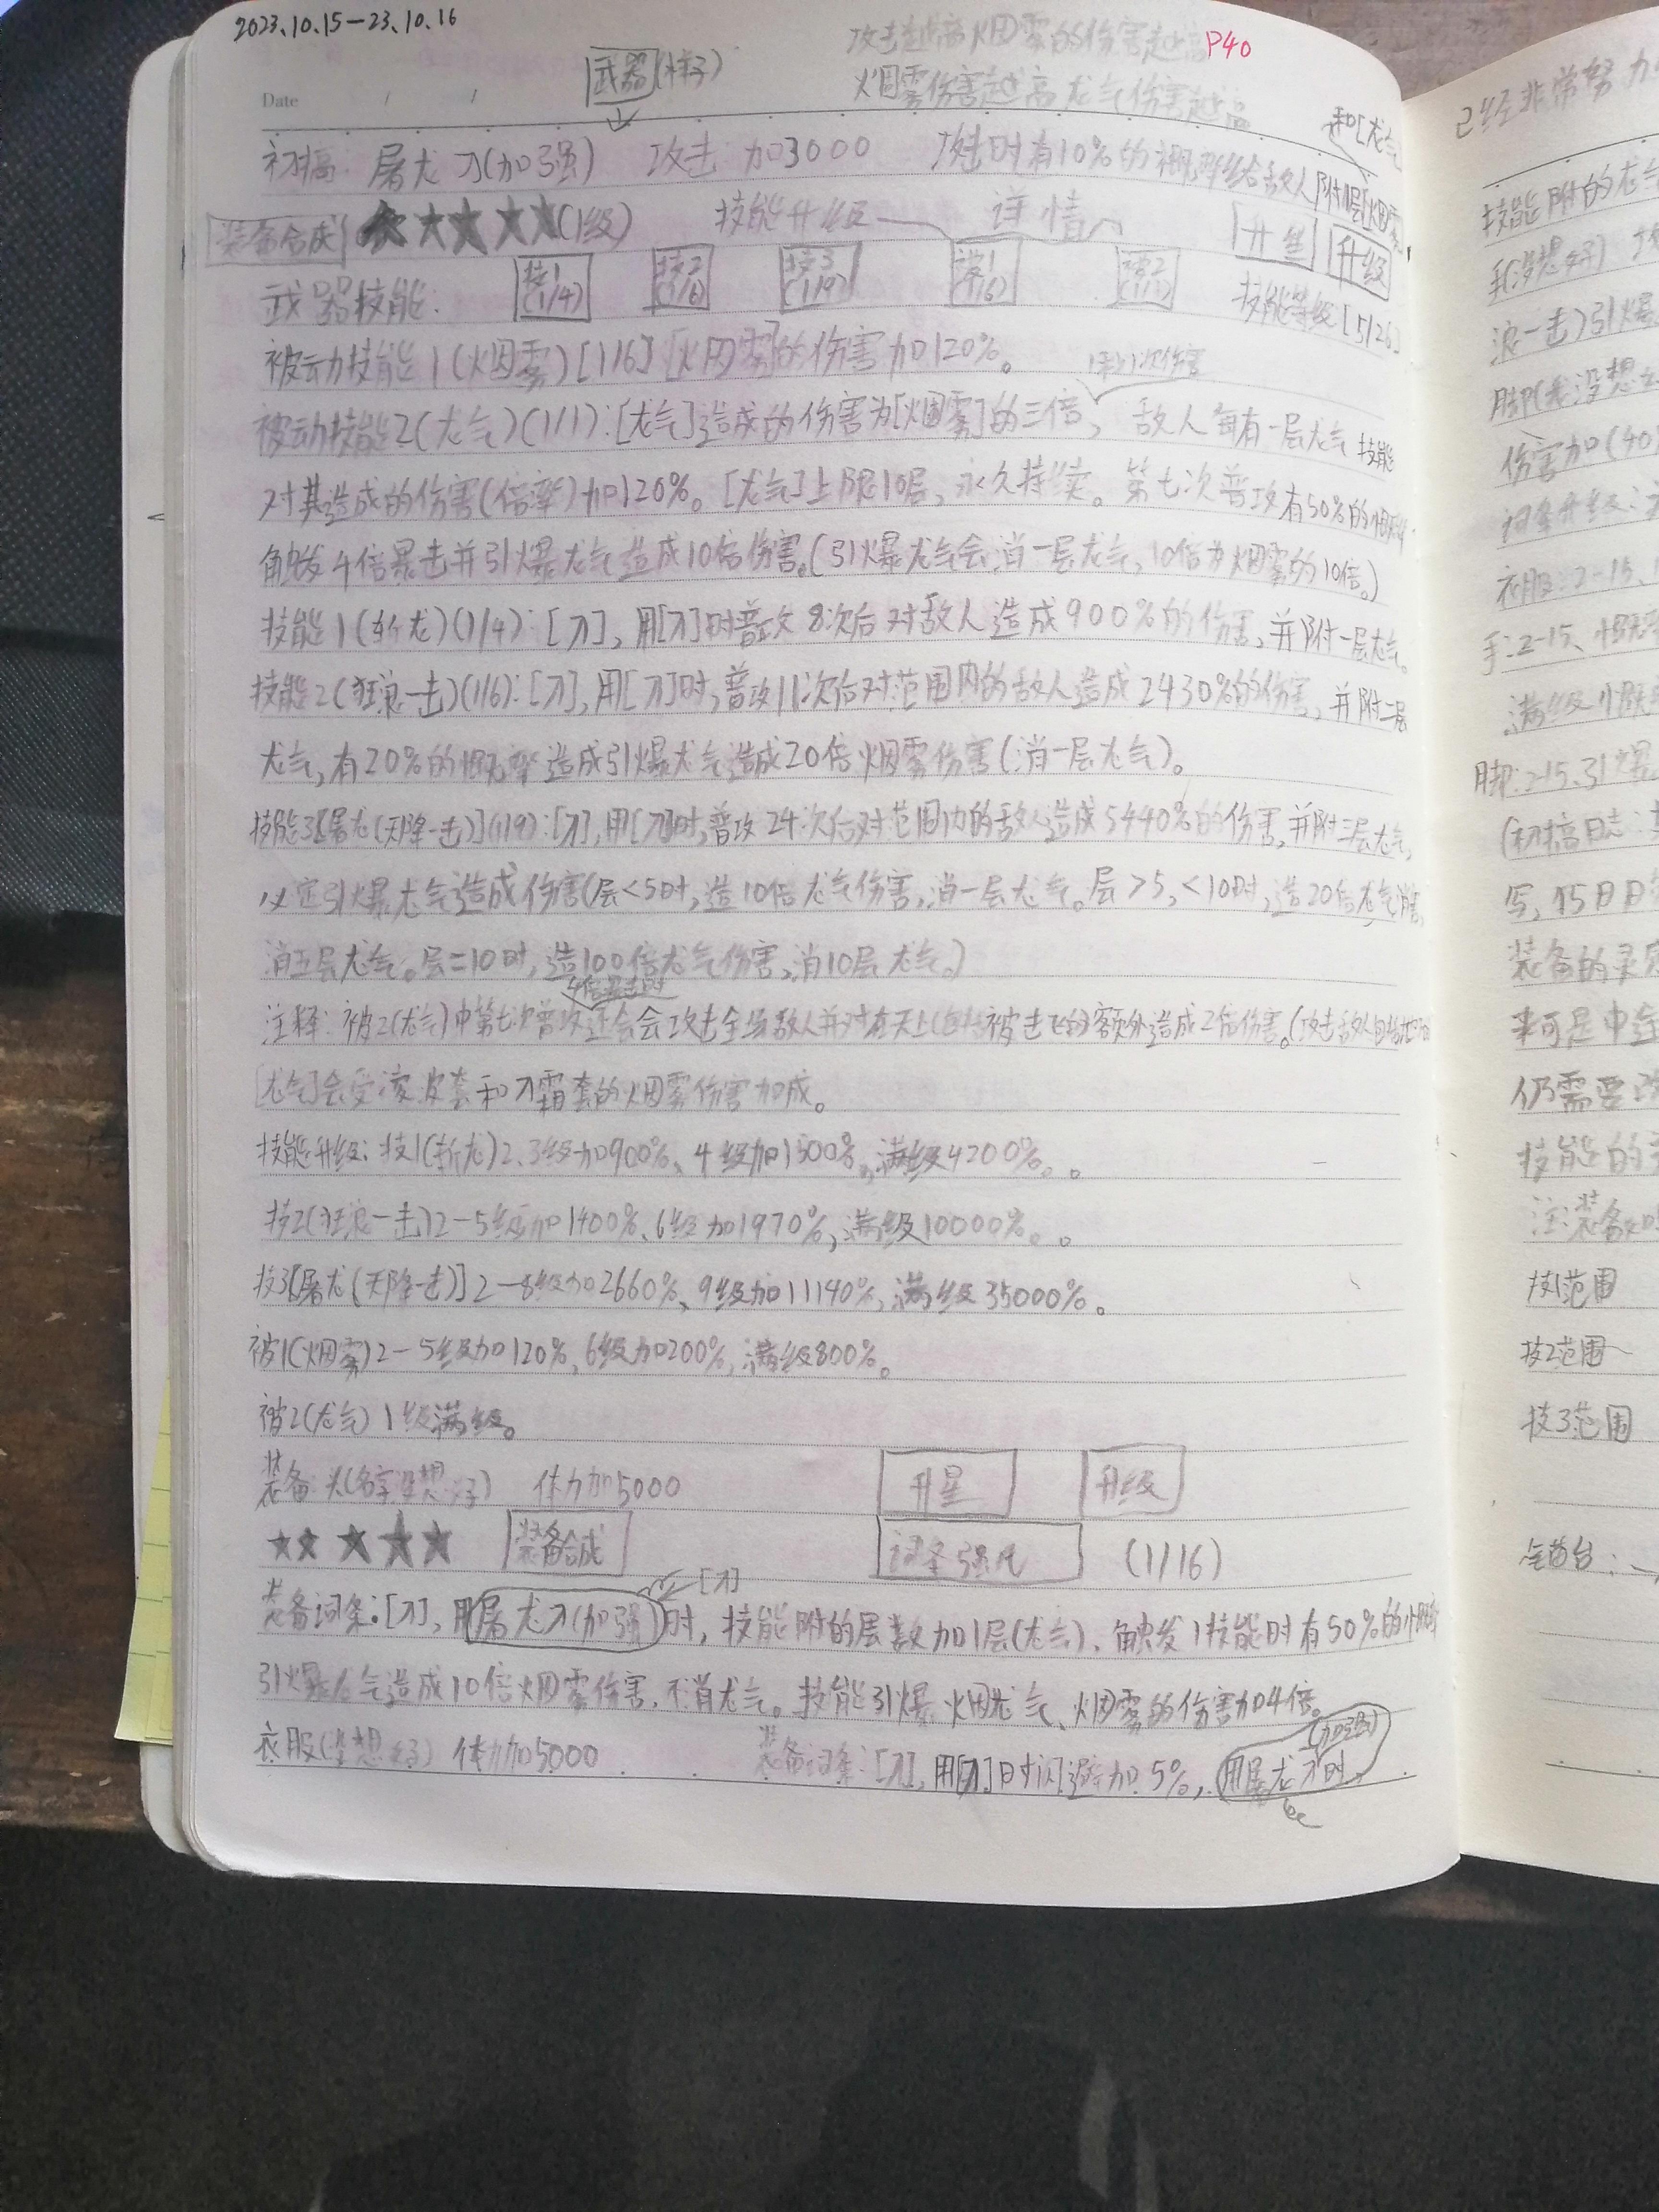 2023.10.15-23.10.16
攻击越高烟雾的伤害越高
P40
武器(样子)
Date / /
烟雾伤害越高龙气伤害越高
和[龙气
初搞: 屠龙刀(加强) 攻击加3000 攻击时有10%的概率给敌人附1层[烟雾
装备合成 ★★★★★(1级) 技能升级 详情 升 升级
武器技能: 技1(1/4) 技2(1/6) 技3(1/9) 被1(1/6) 被2(1/1) 技能等级[5/26]
被动技能1(烟雾)[1/6][烟雾]的伤害加120%。
被动技能2(龙气)(1/1):[龙气]造成的伤害为[烟雾]的三倍, 敌人每有一层龙气 技能
对其造成的伤害(倍率)加120%。[龙气]上限10层,永久持续。第七次普攻有50%的概率
触发4倍暴击并引爆龙气造成10倍伤害。(引爆龙气会消一层龙气,10倍为烟雾的10倍。)
技能1(斩龙)(1/4):[刀],用[刀]时普攻8次后对敌人造成900%的伤害,并附一层龙气。
技能2(狂浪一击)(1/6):[刀],用[刀]时,普攻11次后对范围内的敌人造成2430%的伤害,并附二层
龙气,有20%的概率造成引爆龙气造成20倍烟雾伤害(消一层龙气)。
技能3[屠龙(天降一击)](1/9):[刀],用[刀]时,普攻24次后对范围内的敌人造成5440%的伤害,并附三层龙气,
必定引爆龙气造成伤害(层<5时,造10倍龙气伤害,消一层龙气。层>5,<10时,造20倍龙气伤害,
消五层龙气。层=10时,造100倍龙气伤害,消10层龙气。)
4倍暴击时
注释: 被2(龙气)中第七次普攻还会会攻击全场敌人并对在天上(包括被击飞的)额外造成2倍伤害。(攻击敌人
[龙气]会受凌波套和刀霜套的烟雾伤害加成。
技能升级: 技1(斩龙)2、3级加900%、4级加1500%,满级4200%。
技2(狂浪一击)2-5级加1400%、6级加1970%,满级10000%。
技3[屠龙(天降一击)]2-8级加2660%、9级加11140%,满级35000%。
被1(烟雾)2-5级加120%,6级加200%,满级800%。
被2(龙气)1级满级。
装备:头(名字没想好) 体力加5000 升星 升级
★★★★★ 装备合成 词条强化 (1/16)
[刀]
装备词条:[刀],用屠龙刀(加强)时,技能附的层数加1层(龙气)、触发1技能时有50%的概率
引爆龙气造成10倍烟雾伤害,不消龙气。技能引爆 烟龙气、烟雾的伤害加4倍。
(加强)
衣服(没想好) 体力加5000 装备词条:[刀],用[刀]时闪避加5%,用屠龙刀时,
已经非常努力
技能附的龙气
手(没想好)
浪一击)引爆
脚(我没想好
伤害加(40
词条升级:
衣服:2-15、
手:2-15、概率
满级概率
脚:2-15、引爆
(初搞日志:
写,15日
装备的
来可是中途
仍需要改
技能的
注:装备如
技1范围
技2范围
技3范围